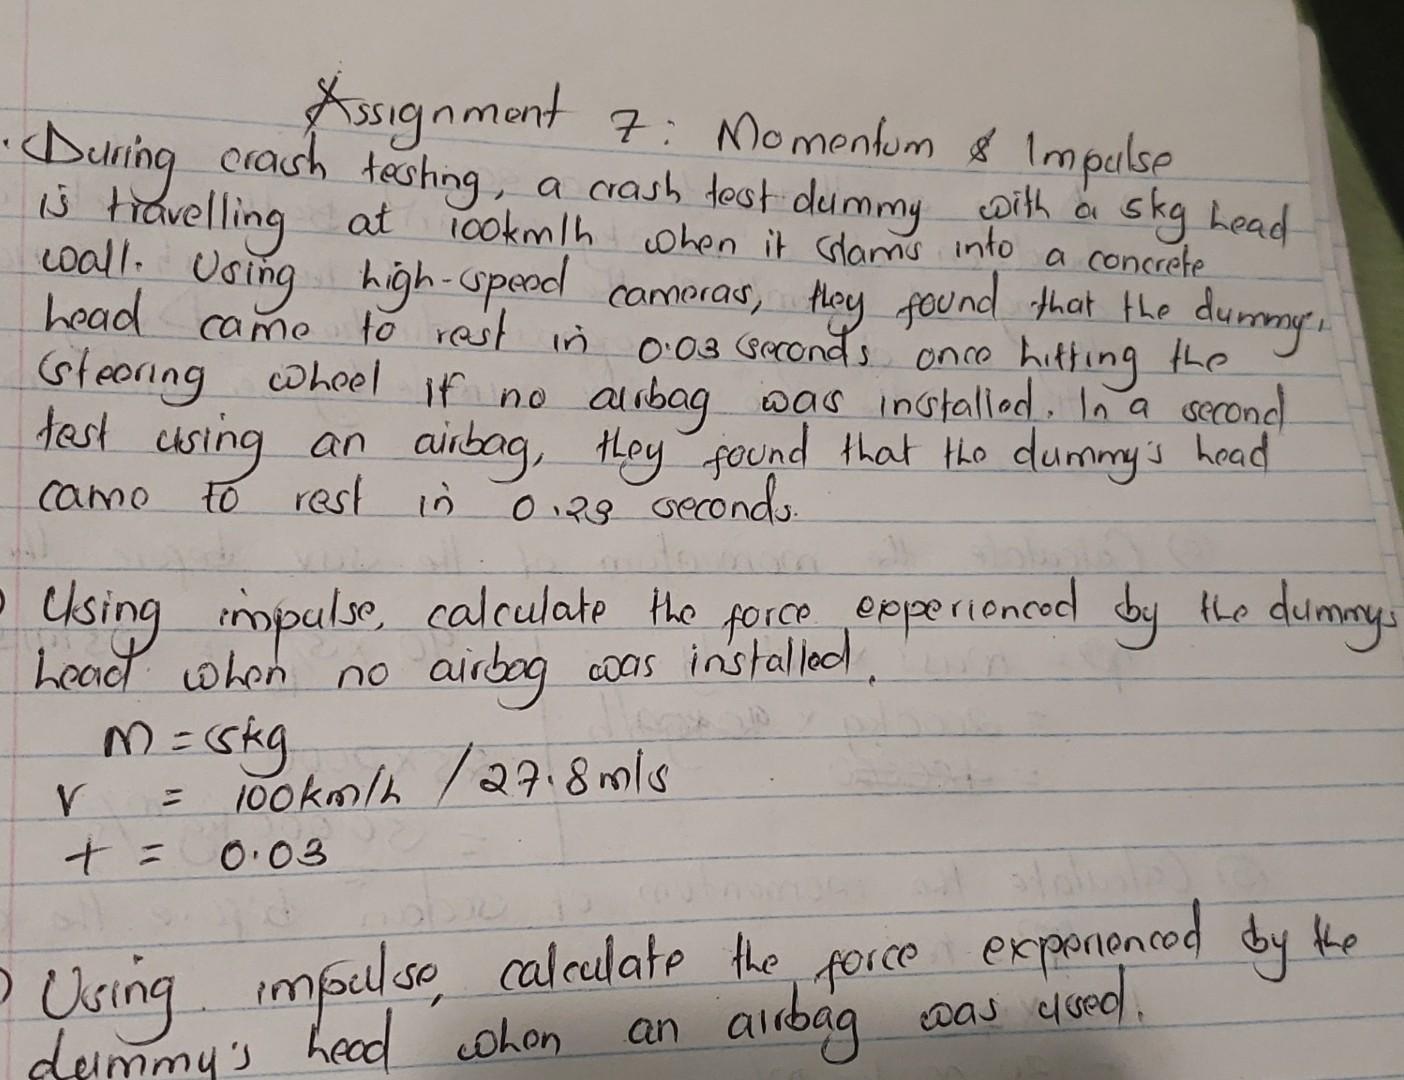 Assignment 7: Momentum & Impulse
During crash testing, a crash test dummy with a 5kg head
is travelling at 100km/h when it slams into a concrete
wall. Using high-speed cameras, they found that the dummy's
head came to rest in 0.03 seconds once hitting the
steering wheel if no airbag was installed. In a second
test using an airbag, they found that the dummy's head
came to rest in 0.29 seconds.
Using impulse, calculate the force experienced by the dummys
head when no airbag was installed.
m = 5kg
v = 100km/h / 27.8m/s
t = 0.03
Using impulse, calculate the force experienced by the
dummy's head when an airbag was used.